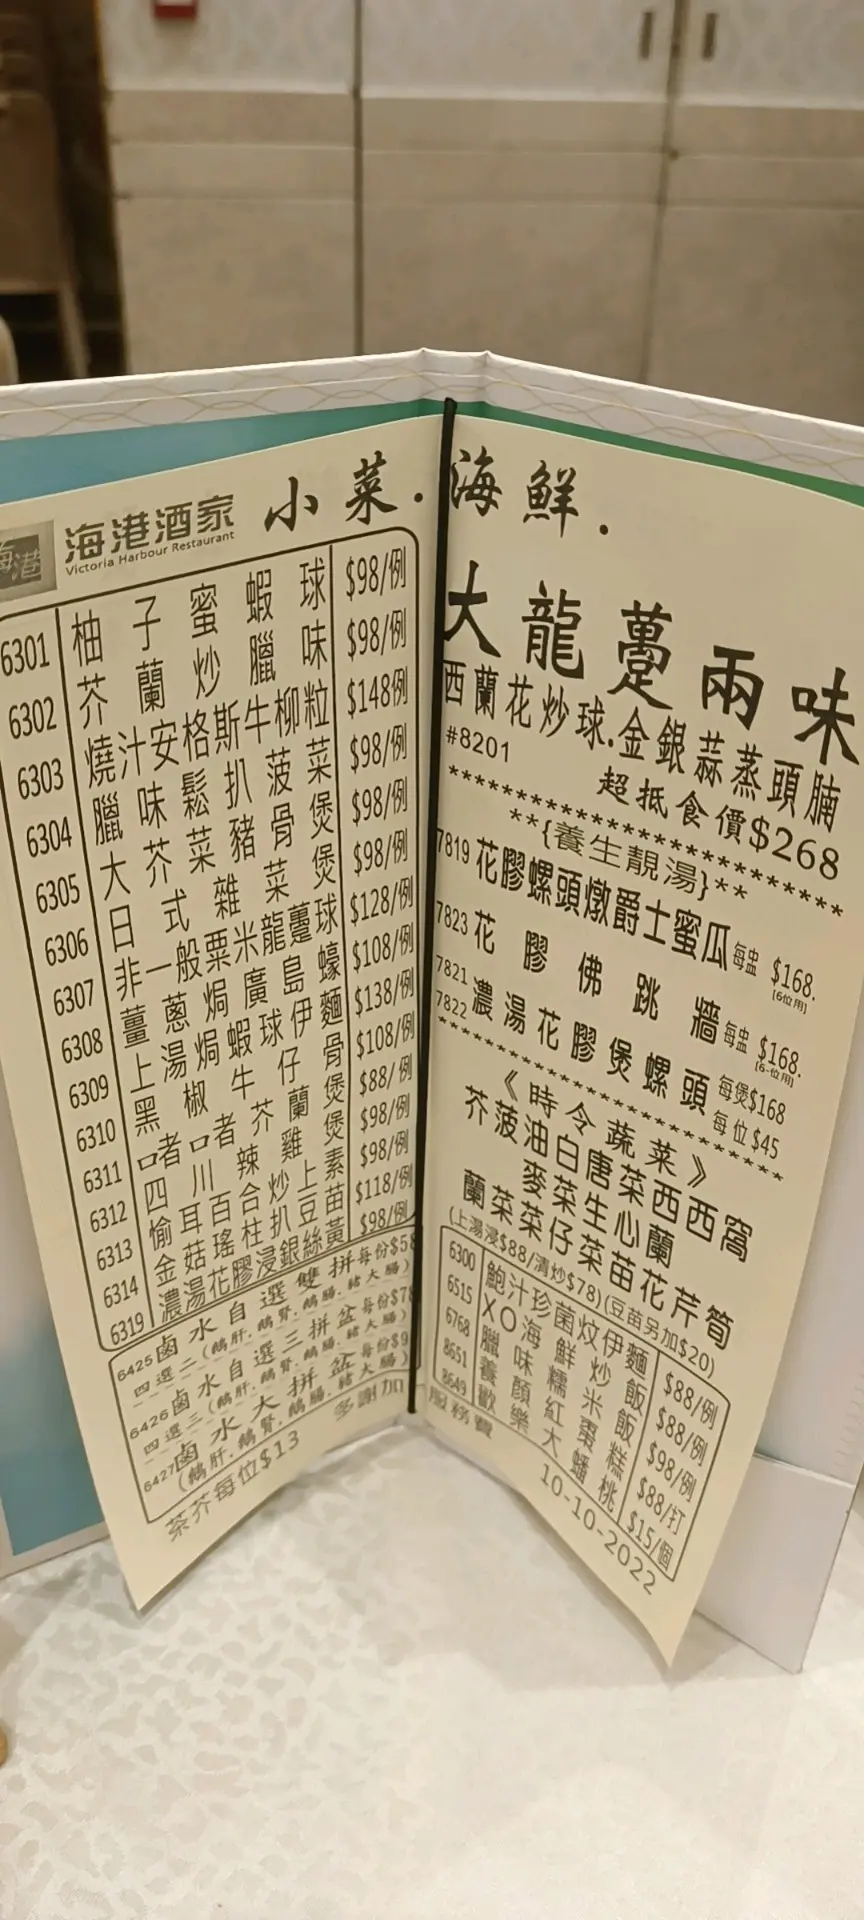 小菜.海鮮.
海港
海港酒家
Victoria Harbour Restaurant
6301 柚子蜜蝦球 $98/例
6302 芥蘭炒臘味 $98/例
6303 燒汁安格斯牛柳粒 $148例
6304 臘味鬆扒菠菜 $98/例
6305 大芥菜豬骨煲 $98/例
6306 日式雜菜煲 $98/例
6307 非一般粟米龍躉球 $128/例
6308 薑蔥焗廣島蠔 $108/例
6309 上湯焗蝦球伊麵 $138/例
6310 黑椒牛仔骨 $108/例
6311 啫啫芥蘭煲 $88/例
6312 四川辣雞煲 $98/例
6313 愉耳百合炒上素 $98/例
6314 金菇瑤柱扒豆苗 $118/例
6319 濃湯花膠浸銀絲黃 $98/例
6425 鹵水自選雙拼 每份$58
四選二(鵝肝,鵝腎,鵝腸,豬大腸)
6426 鹵水自選三拼盆 每份$78
四選三(鵝肝,鵝腎,鵝腸,豬大腸)
6427 鹵水大拼盆 每份$9
(鵝肝,鵝腎,鵝腸,豬大腸)
茶芥每位$13 多謝加
大龍躉兩味
西蘭花炒球.金銀蒜蒸頭腩
#8201 超抵食價$268
********************************
**{養生靚湯}**
7819 花膠螺頭燉爵士蜜瓜 每盅 $168.
[6位用]
7823 花膠佛跳牆 每盅 $168.
[6-位用]
7821 濃湯花膠煲螺頭 每煲$168
7822 每位 $45
********************************
《時令蔬菜》
芥菠油白唐菜西西窩
麥菜生心蘭
蘭菜菜仔菜苗花芹筍
(上湯浸$88/清炒$78)(豆苗另加$20)
6300 鮑汁珍菌炆伊麵 $88/例
6515 XO海鮮炒飯 $88/例
6768 臘味糯米飯 $98/例
8651 養顏紅棗糕 $88/打
8649 歡樂大蟠桃 $15/個
服務費
10-10-2022